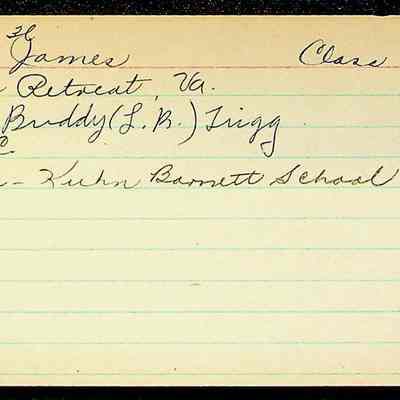 James Class
Retreat, Va.
Buddy (L. R.) Trigg
- Kuhn Barnett School